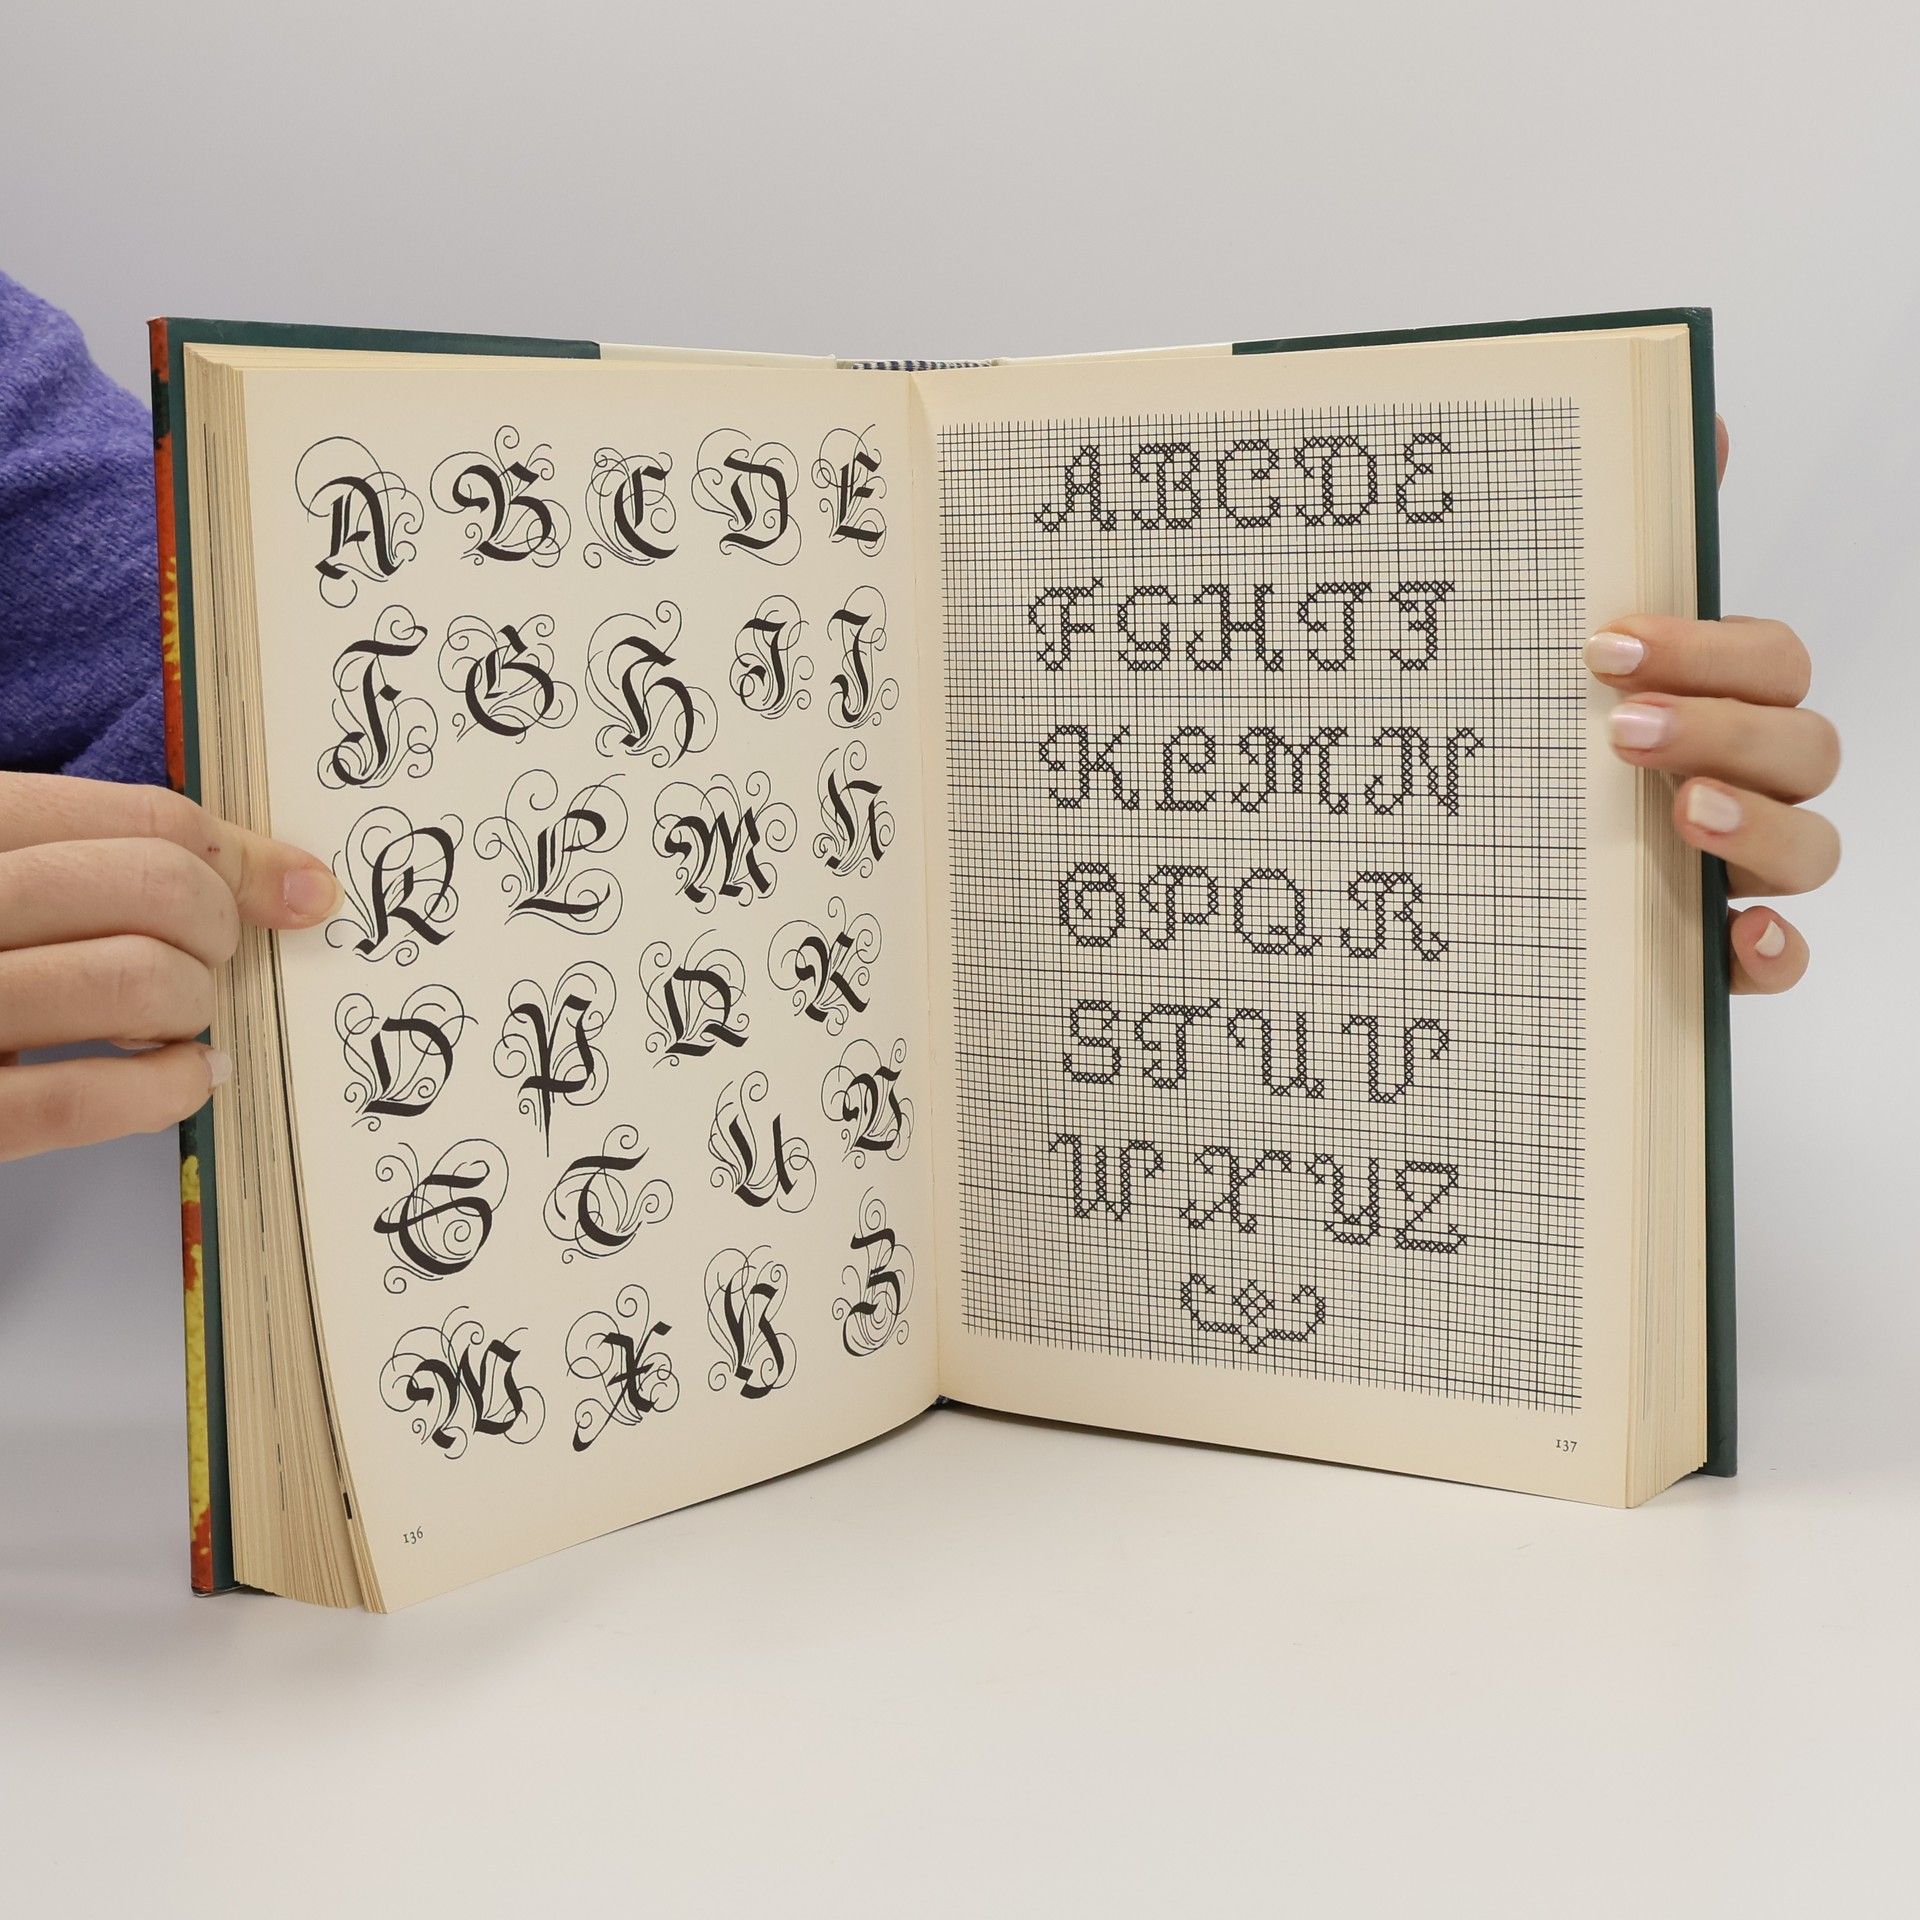 A B C D E
F G H I J
K L M N
O P Q R
S T U V
W X Y Z
136
A B C D E
F G H I J
K L M N
O P Q R
S T U V
W X Y Z
137